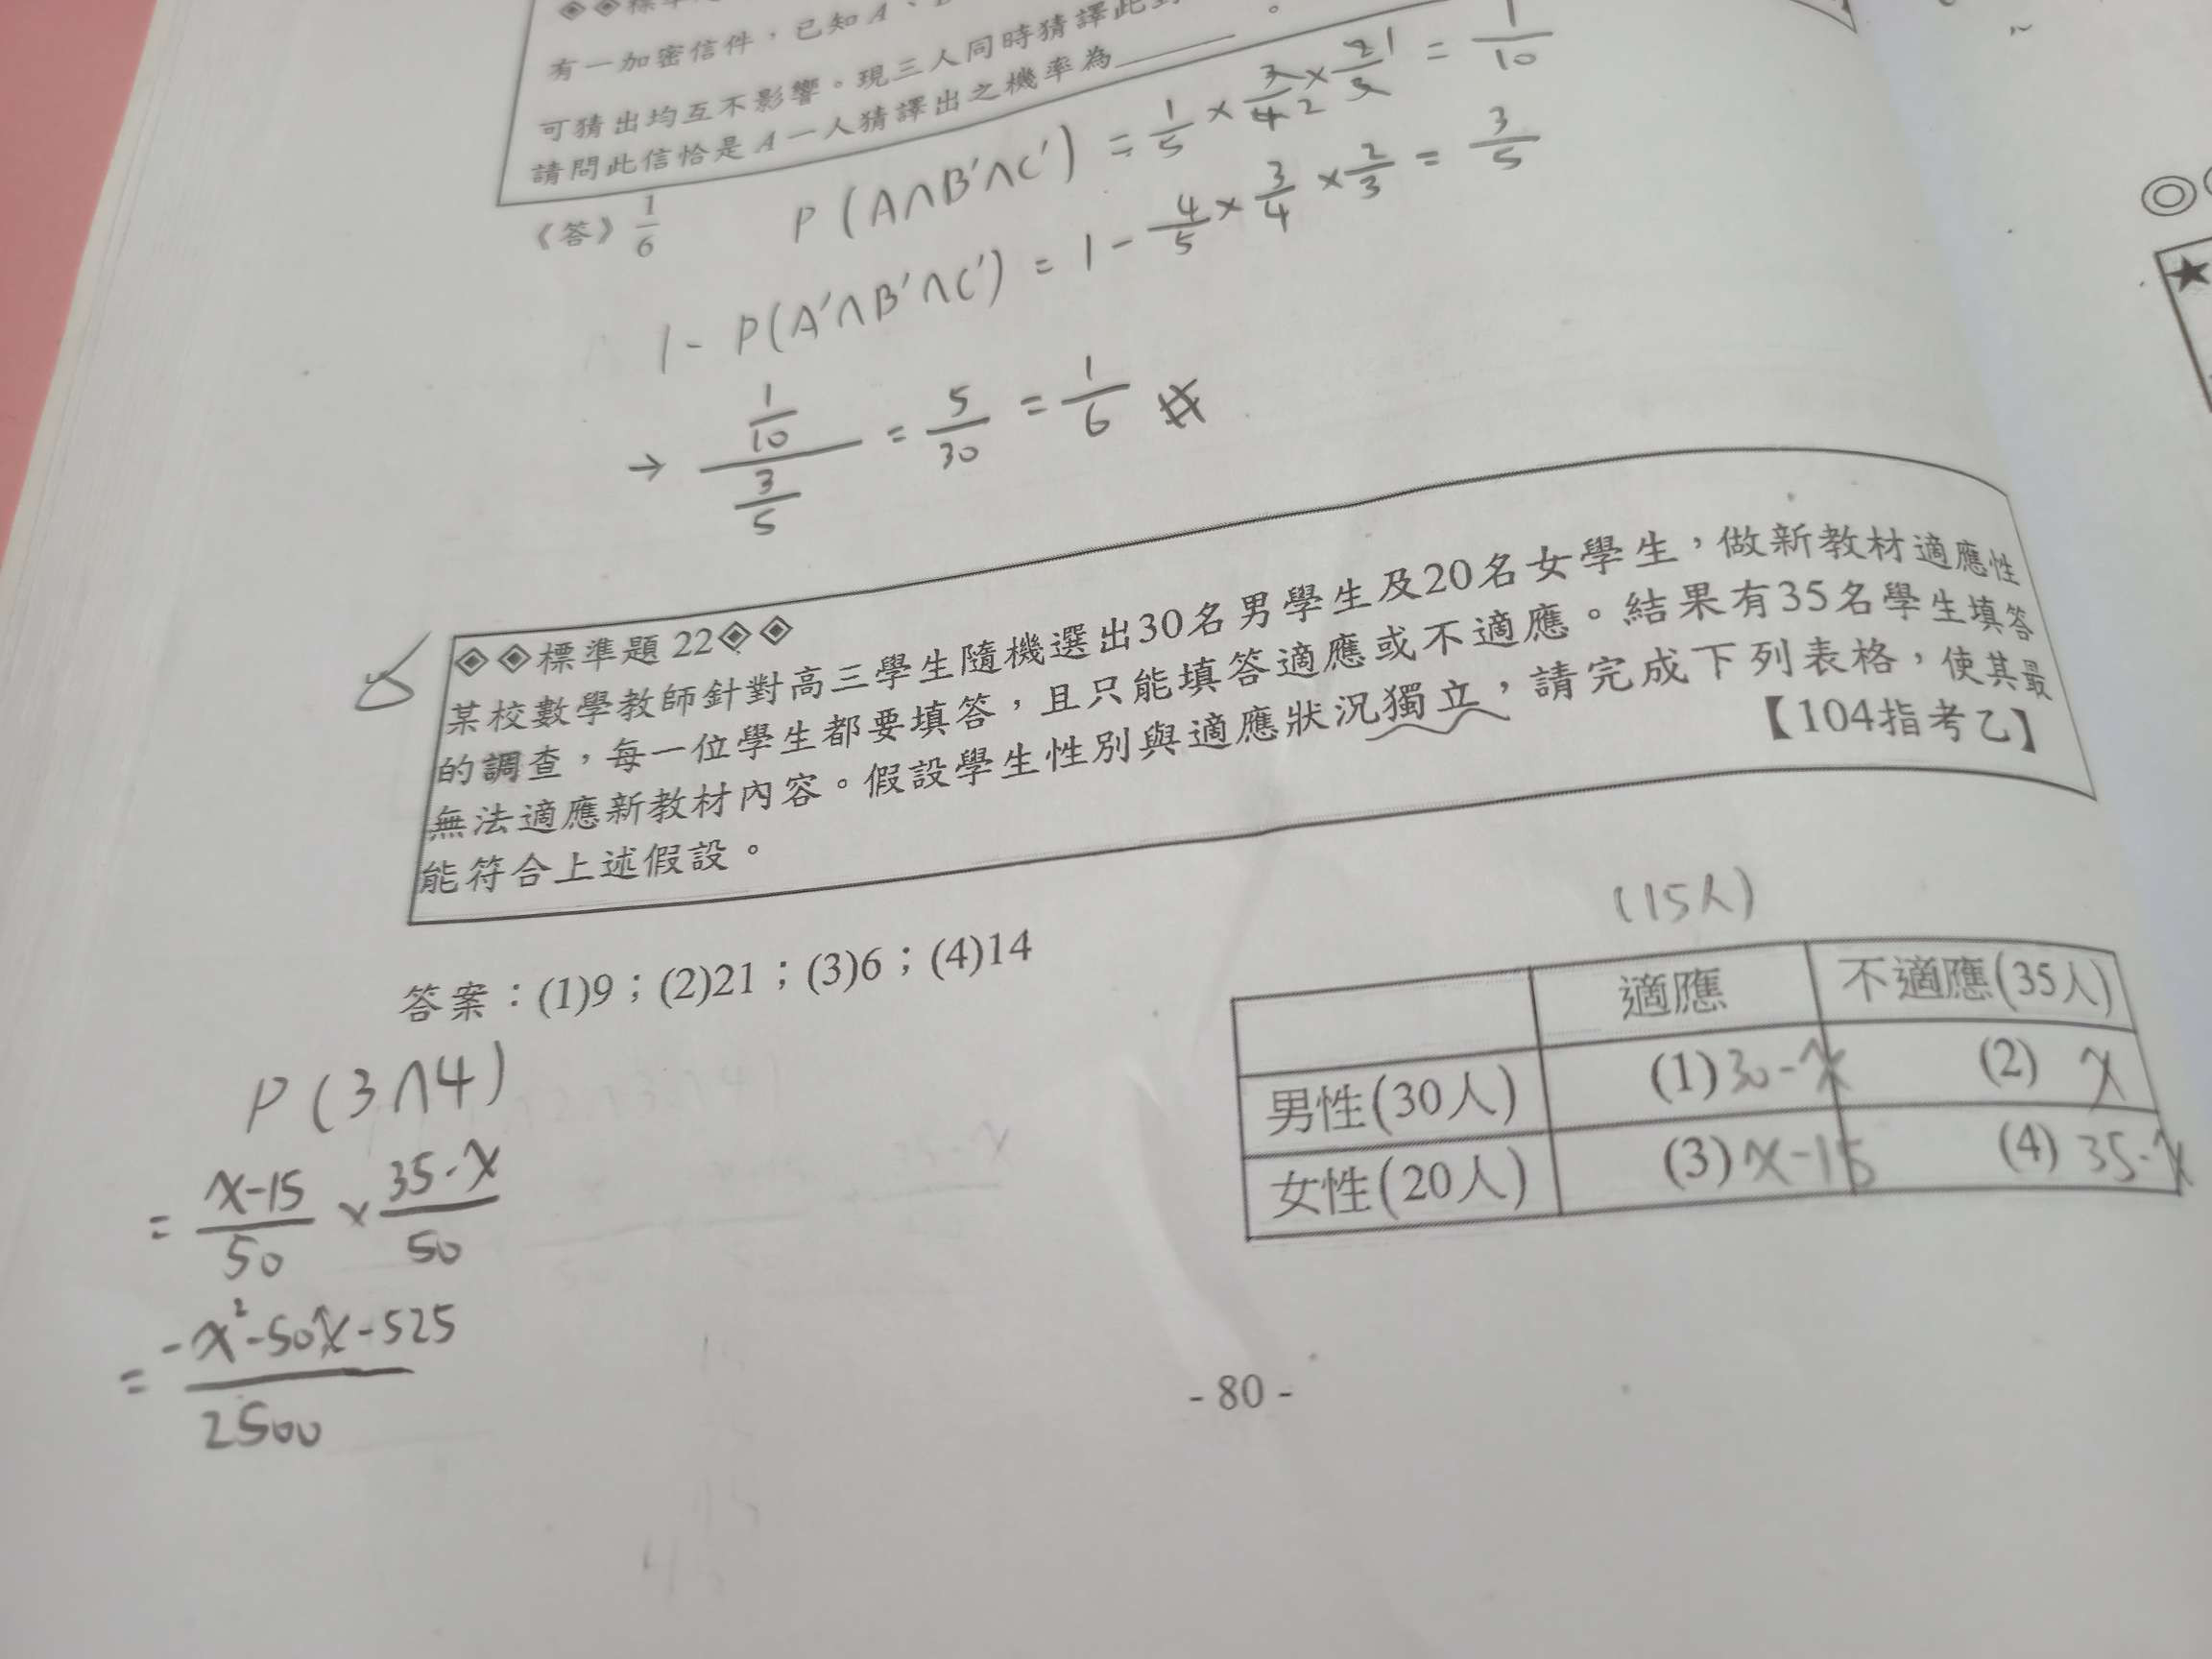 有一加密信件，已知 A、
可猜出均互不影響。現三人同時猜譯此
請問此信恰是 A 一人猜譯出之機率為______。
《答》1/6
P(A∩B'∩C') = 1/5 × 3/4 2 × 2 1/3 = 1/10
1 - P(A'∩B'∩C') = 1 - 4/5 × 3/4 × 2/3 = 3/5
→ 1/10 / 3/5 = 5/30 = 1/6 #
◈◈標準題 22◈◈
某校數學教師針對高三學生隨機選出30名男學生及20名女學生，做新教材適應性
的調查，每一位學生都要填答，且只能填答適應或不適應。結果有35名學生填答
無法適應新教材內容。假設學生性別與適應狀況獨立，請完成下列表格，使其最
能符合上述假設。 【104指考乙】
答案：(1)9；(2)21；(3)6；(4)14
(15人)
適應 不適應(35人)
男性(30人) (1) 30-x (2) x
女性(20人) (3) x-15 (4) 35-x
P(3∩4)
= x-15/50 × 35-x/50
= -x²-50x-525/2500
- 80 -